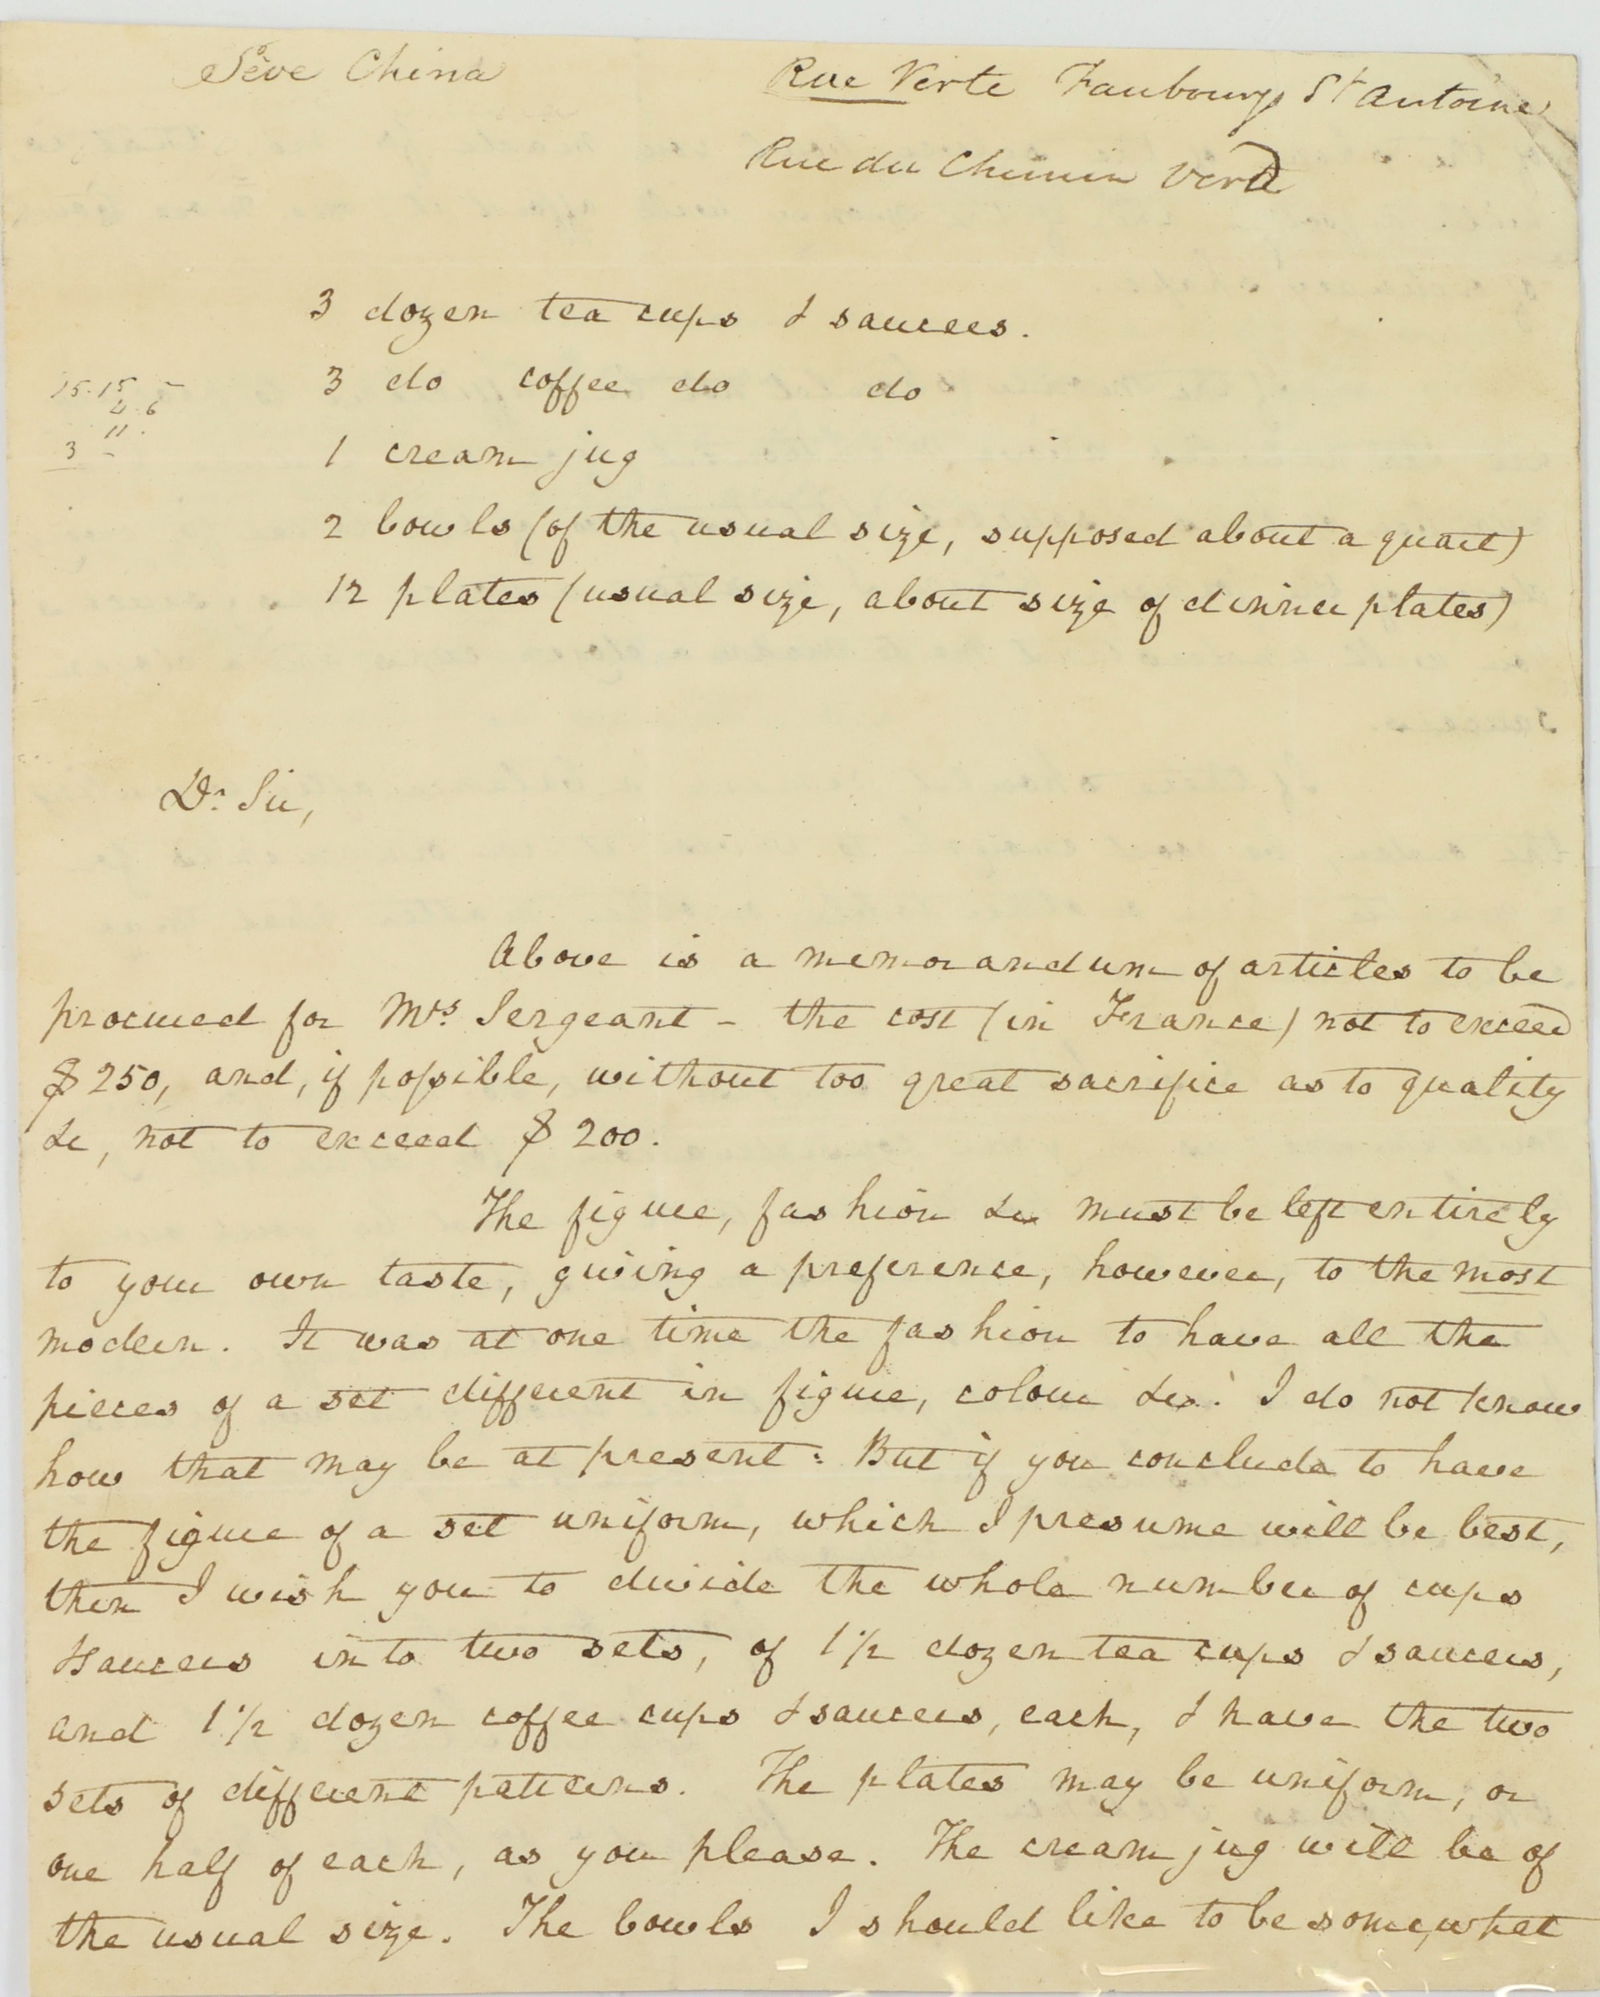 Sève China
Rue Verte Faubourg St Antoine
Rue du Chemin Vert
3 dozen tea cups & saucers.
3 do coffee do do
15.15 –
4.6
11.
3 –
1 cream jug
2 bowls (of the usual size, supposed about a quart)
12 plates (usual size, about size of dinner plates)
Dr. Sir,
Above is a memorandum of articles to be
procured for Mrs. Sergeant - the cost (in France) not to exceed
$250, and, if possible, without too great sacrifice as to quality
&c, not to exceed $200.
The figure, fashion &c must be left entirely
to your own taste, giving a preference, however, to the most
modern. It was at one time the fashion to have all the
pieces of a set different in figure, colour &c. I do not know
how that may be at present: But if you conclude to have
the figure of a set uniform, which I presume will be best,
then I wish you to divide the whole number of cups
& saucers into two sets, of 1 1/2 dozen tea cups & saucers,
and 1 1/2 dozen coffee cups & saucers, each, & have the two
sets of different patterns. The plates may be uniform, or
one half of each, as you please. The cream jug will be of
the usual size. The bowls I should like to be somewhat